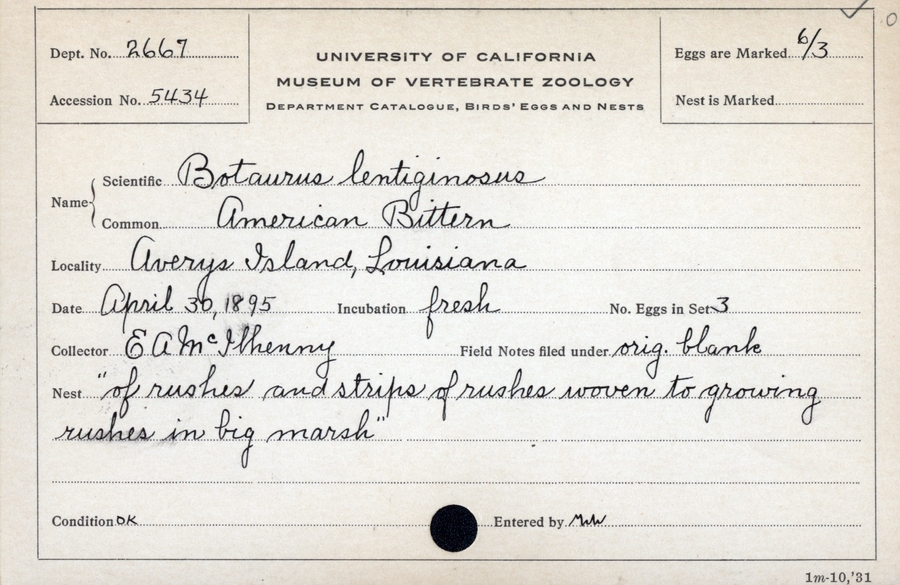 Dept. No. 2667
UNIVERSITY OF CALIFORNIA
MUSEUM OF VERTEBRATE ZOOLOGY
DEPARTMENT CATALOGUE, BIRDS' EGGS AND NESTS
Eggs are Marked 6/3
Accession No. 5434
Nest is Marked
Name
Scientific Botaurus lentiginosus
Common American Bittern
Locality Averys Island, Louisiana
Date April 30, 1895 Incubation fresh No. Eggs in Set 3
Collector E A McIlhenny Field Notes filed under orig. blank
Nest "of rushes and strips of rushes woven to growing
rushes in big marsh"
Condition OK Entered by
1m-10,'31